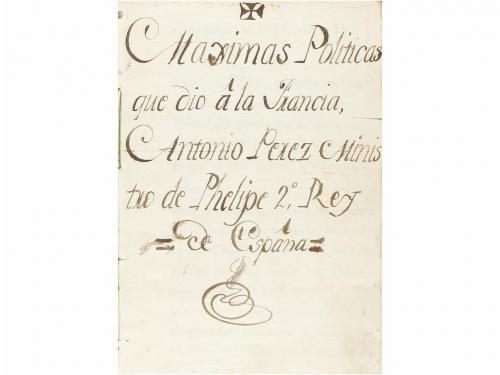 Maximas Politicas
que dio â la Francia,
Antonio Perez Minis
tro de Phelipe 2º. Rey
= de España =